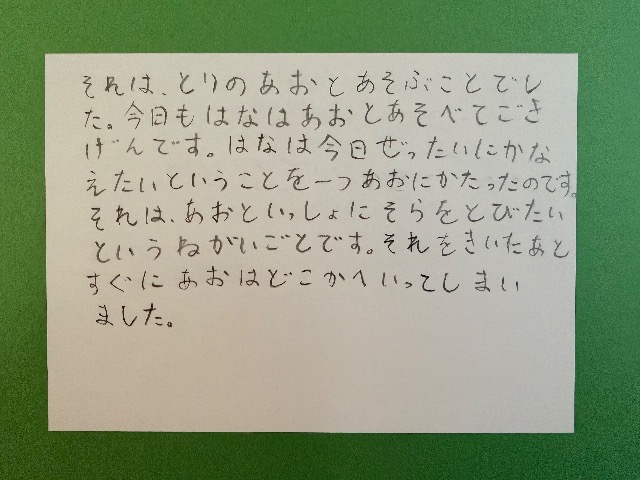 それは、とりのあおとあそぶことでし
た。今日もはなはあおとあそべてごき
げんです。はなは今日ぜったいにかな
えたいということを一つあおにかたったのです。
それは、あおといっしょにそらをとびたい
というねがいごとです。それをきいたあと
すぐにあおはどこかへいってしまい
ました。